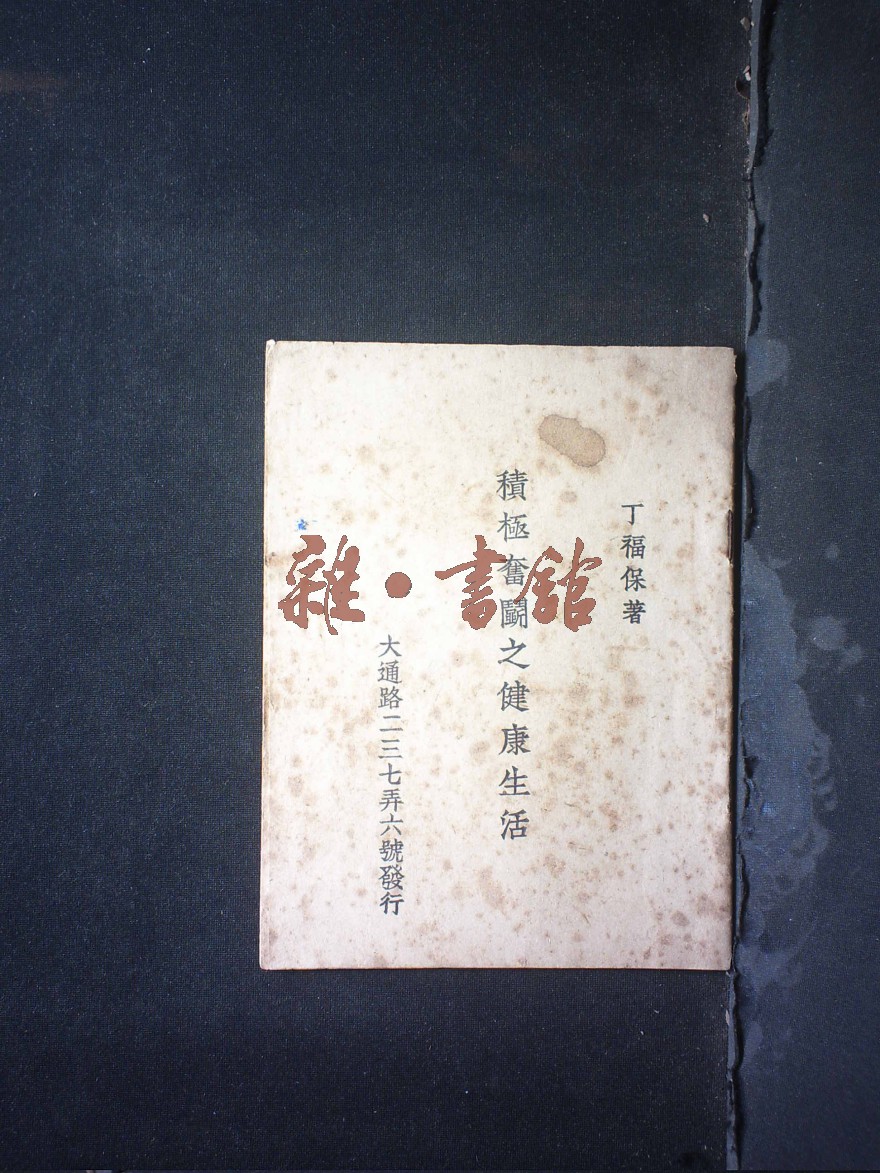 丁福保著
積極奮鬪之健康生活
大通路二三七弄六號發行
雜·書舘